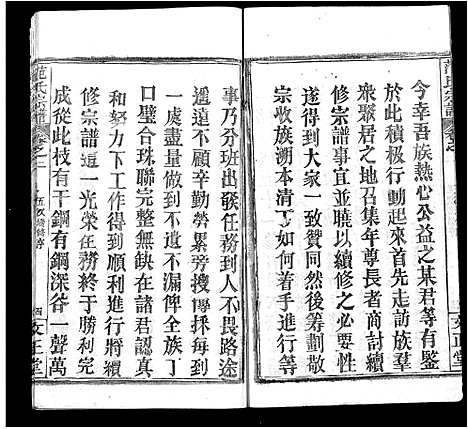 范氏宗譜
今幸吾族熱心公益之某君等有鑒
於此積极行動起來首先走訪族羣
衆聚居之地召集年長者商討續
修宗譜事宜並曉以續修之必要性
遂得到大家一致贊同然後籌劃敬
宗收族溯本清了如何着手進行等
文正堂
事乃分班出發任務到人不畏路途
遥遠不顧辛勤勞累旁搜博採每到
一處盡量做到不遺不漏俾全族丁
口璧合珠聯完整無缺在諸君認真
和努力下工作得到順利進行將續
修宗譜這一光榮任務終于勝利完
成從此枝有干鋼有鋼深谷一聲萬
范氏宗譜
文正堂